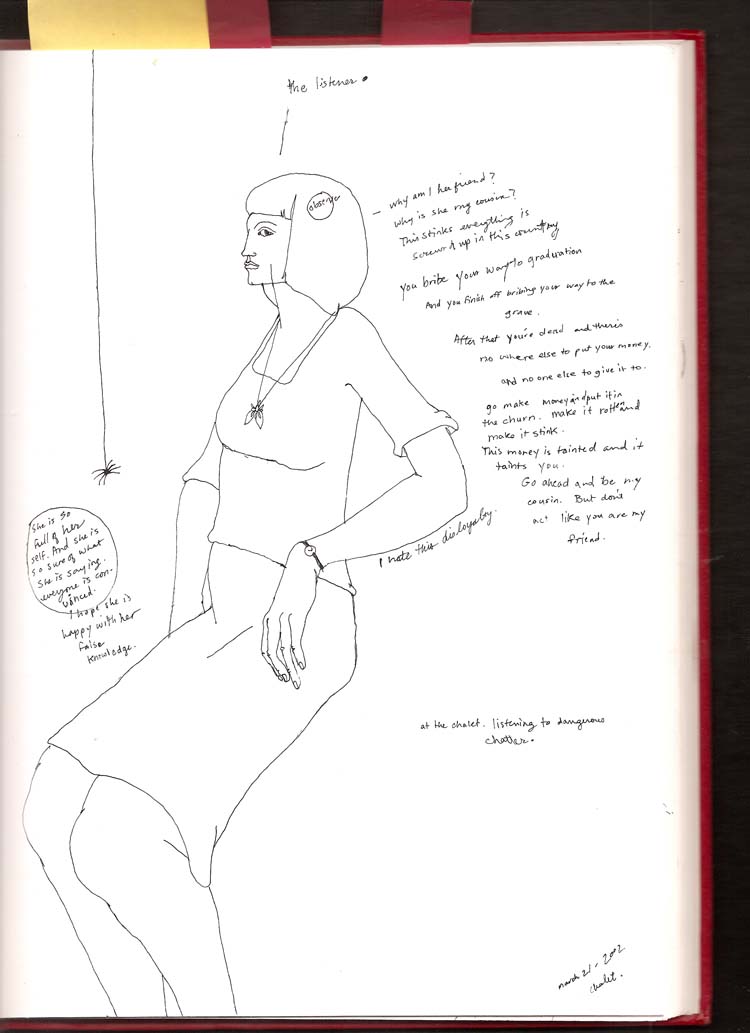 the listener.
observer
why am I her friend?
why is she my cousin?
This stinks everything is
screwed up in this country
you bribe your way to graduation
And you finish off bribing your way to the
grave.
After that you're dead and there's
no where else to put your money.
and no one else to give it to.
go make money and put it in
the churn. make it rotten and
make it stink.
This money is tainted and it
taints you.
Go ahead and be my
cousin. But don't
act like you are my
friend.
I hate this disloyalty.
She is so
full of her
self. And she is
so sure of what
she is saying.
everyone is con-
vinced.
I hope she is
happy with her
false
knowledge.
at the chalet. listening to dangerous
chatter.
march 21 - 2002
chalet.